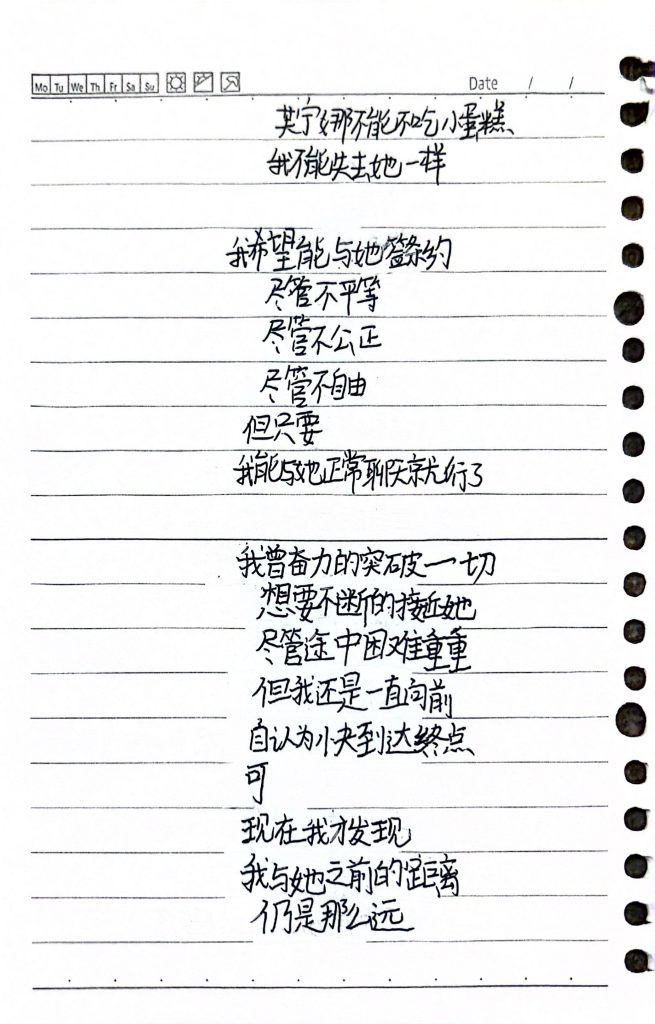 Mo Tu We Th Fr Sa Su Date / /
芙宁娜不能不吃小蛋糕
我不能失去她一样
我希望能与她签约
尽管不平等
尽管不公正
尽管不自由
但只要
我能与她正常聊天就行了
我曾奋力的突破一切
想要不断的接近她
尽管途中困难重重
但我还是一直向前
自认为小夬到达终点
可
现在我才发现
我与她之前的距离
仍是那么远